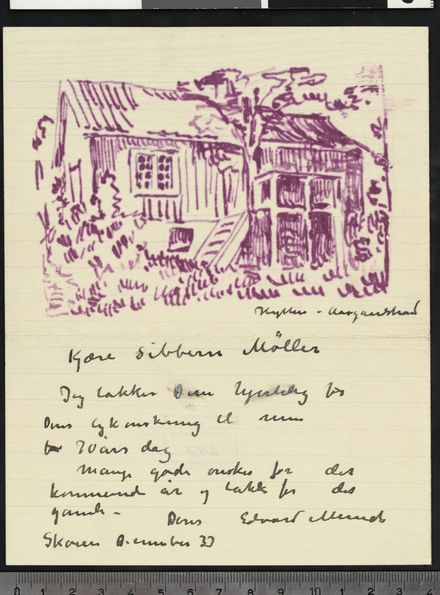 Hytten - Aasgaardstrand
Kjære Sibbern Møller
Jeg takker Dem hjertelig for
Deres lykønskning til min
70 års dag
Mange gode ønsker for det
kommende år og takk for det
gamle -
Deres Edvard Munch
Skøien December 33
0 1 2 3 4 5 6 7 8 9 10 1 2 3 4